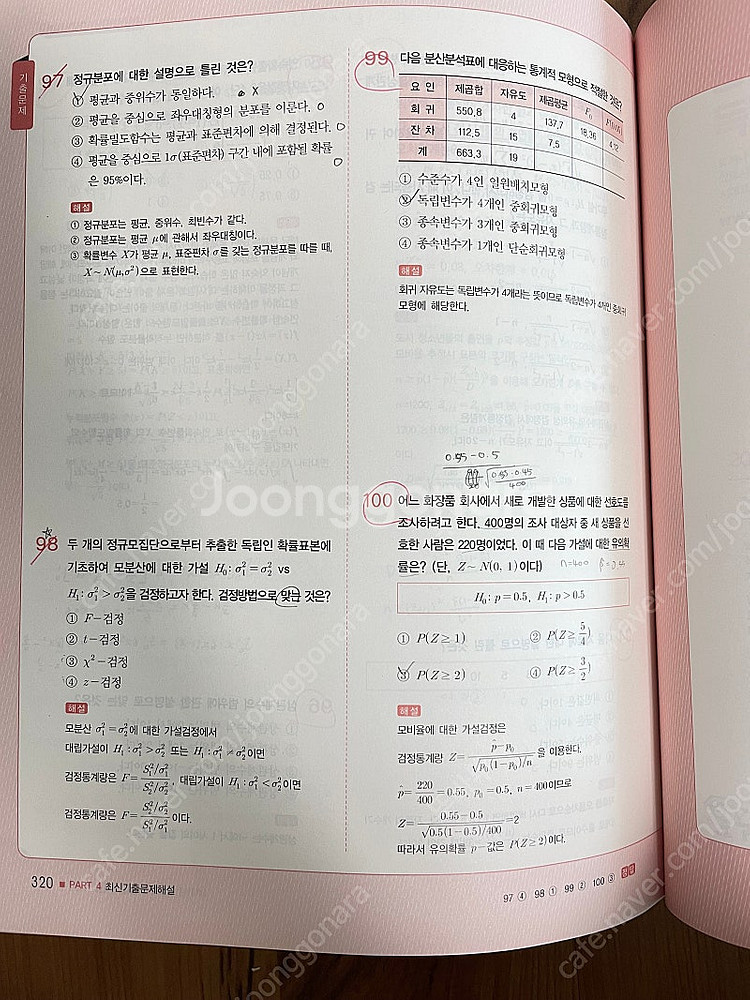 기출문제
97 정규분포에 대한 설명으로 틀린 것은?
① 평균과 중위수가 동일하다. X
② 평균을 중심으로 좌우대칭형의 분포를 이룬다. O
③ 확률밀도함수는 평균과 표준편차에 의해 결정된다. O
④ 평균을 중심으로 1σ(표준편차) 구간 내에 포함될 확률 O
은 95%이다.
해설
① 정규분포는 평균, 중위수, 최빈수가 같다.
② 정규분포는 평균 μ에 관해서 좌우대칭이다.
③ 확률변수 X가 평균 μ, 표준편차 σ를 갖는 정규분포를 따를 때,
X~N(μ,σ²)으로 표현한다.
98 두 개의 정규모집단으로부터 추출한 독립인 확률표본에
기초하여 모분산에 대한 가설 H₀: σ₁²=σ₂² vs
H₁: σ₁²>σ₂²을 검정하고자 한다. 검정방법으로 맞는 것은?
① F-검정
② t-검정
③ χ²-검정
④ z-검정
해설
모분산 σ₁²=σ₂²에 대한 가설검정에서
대립가설이 H₁: σ₁²>σ₂² 또는 H₁: σ₁²≠σ₂²이면
검정통계량은 F=(S₁²/σ₁²)/(S₂²/σ₂²), 대립가설이 H₁: σ₁²<σ₂²이면
검정통계량은 F=(S₂²/σ₂²)/(S₁²/σ₁²)이다.
320 ■ PART 4 최신기출문제해설
99 다음 분산분석표에 대응하는 통계적 모형으로 적절한 것은?
요인 제곱합 자유도 제곱평균 F₀
회귀 550.8 4 137.7 18.36 4.12
잔차 112.5 15 7.5
계 663.3 19
① 수준수가 4인 일원배치모형
② 독립변수가 4개인 중회귀모형
③ 종속변수가 3개인 중회귀모형
④ 종속변수가 1개인 단순회귀모형
해설
회귀 자유도는 독립변수가 4개라는 뜻이므로 독립변수가 4개인 중회귀
모형에 해당한다.
0.55-0.5
√(0.55·0.45/400)
100 어느 화장품 회사에서 새로 개발한 상품에 대한 선호도를
조사하려고 한다. 400명의 조사 대상자 중 새 상품을 선
호한 사람은 220명이었다. 이 때 다음 가설에 대한 유의확
률은? (단, Z~N(0, 1)이다) n=400
H₀: p=0.5, H₁: p>0.5
① P(Z≥1) ② P(Z≥5/4)
③ P(Z≥2) ④ P(Z≥3/2)
해설
모비율에 대한 가설검정은
검정통계량 Z=(p̂-p₀)/√(p₀(1-p₀)/n)을 이용한다.
p̂=220/400=0.55, p₀=0.5, n=400이므로
Z=(0.55-0.5)/√(0.5(1-0.5)/400)=2
따라서 유의확률 p-값은 P(Z≥2)이다.
97 ④ 98 ① 99 ② 100 ③ 정답
Joonggonara
cafe.naver.com/joonggonara